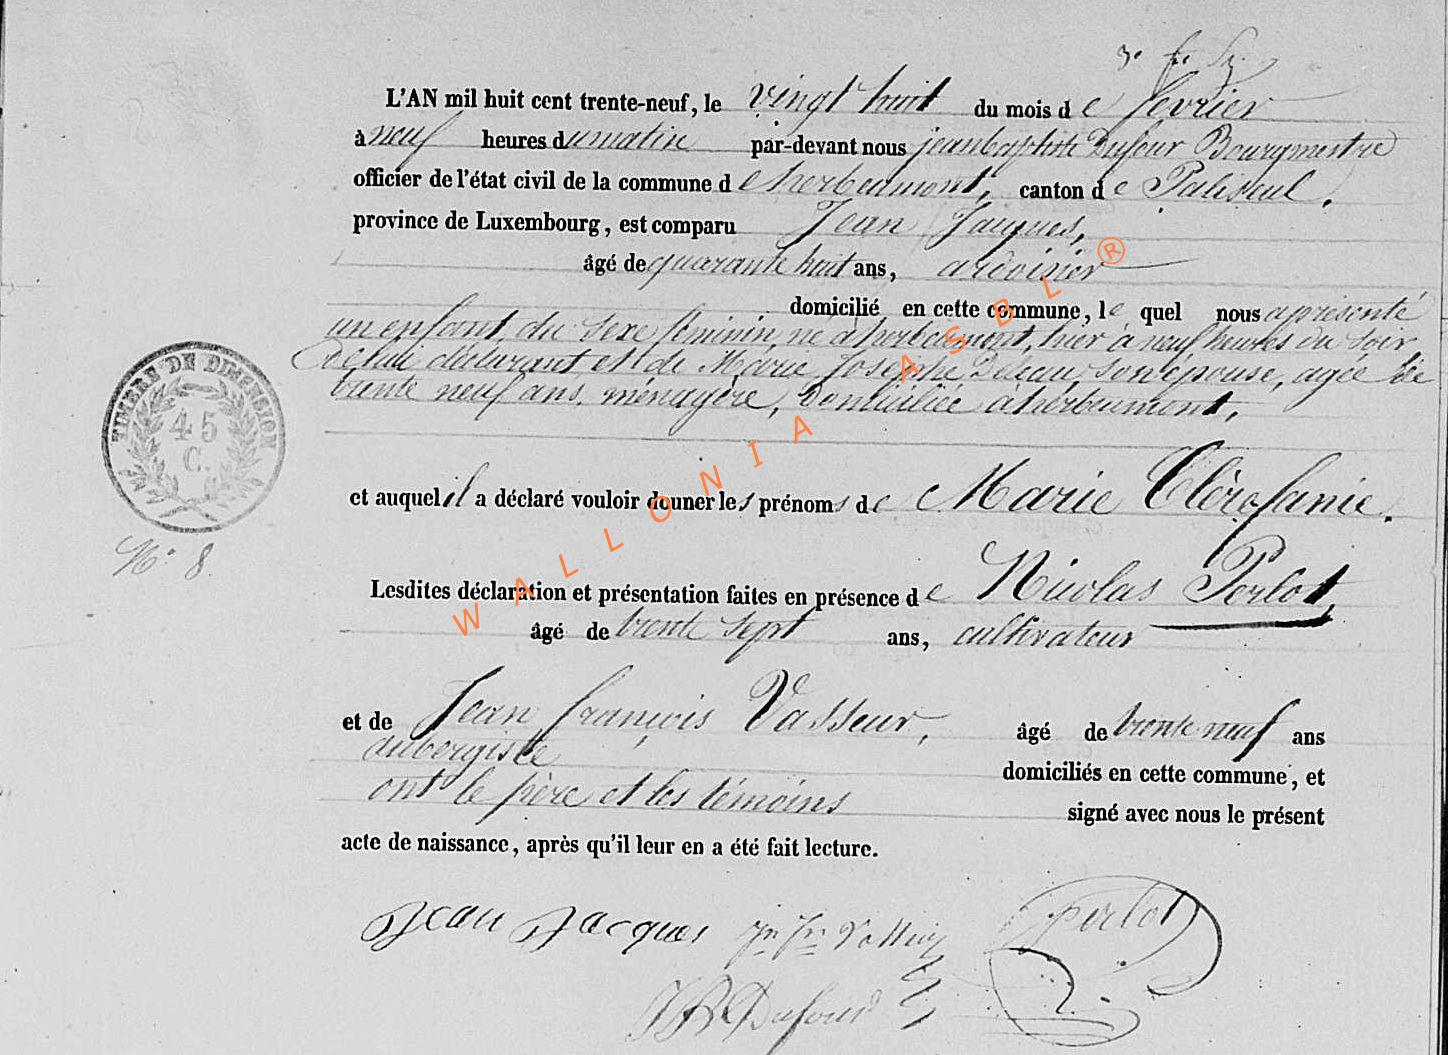 L'AN mil huit cent trente-neuf, le vingt huit du mois de fevrier
à neuf heures du matin par-devant nous jean baptiste Dufour Bourgmestre
officier de l'état civil de la commune de herbeumont, canton de Paliseul,
province de Luxembourg, est comparu Jean Jacques,
âgé de quarante huit ans, ardoisier
domicilié en cette commune, le quel nous a présenté
un enfant du sexe féminin, né à herbeumont, hier à neuf heures du soir
de lui déclarant et de Marie Josephe son épouse, agée de
trente neuf ans, ménagère, Domiciliée à herbeumont,
TIMBRE DE DIMENSION
45
C.
et auquel il a déclaré vouloir donner les prénoms de Marie
N° 8.
Lesdites déclaration et présentation faites en présence de Nicolas Perlot,
âgé de trente sept ans, cultivateur
et de Jean françois Vasseur, âgé de trente neuf ans
aubergiste
domiciliés en cette commune, et
ont le père et les témoins signé avec nous le présent
acte de naissance, après qu'il leur en a été fait lecture.
Jean Jacques Jn Fr Vasseur Perlot
JB Dufour
WALLONIA ASBL ®